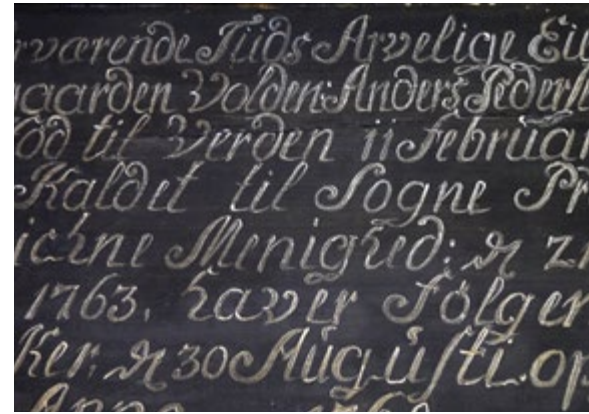 rværende Tiids Arvelige Eie
gaarden Volden: Anders Pederh
ød til Verden 11 februar
Kaldet til Sogne Pr
ichne Menighed: d 21
1763. haver følger
Ker: d 30 Augusti. op
Anno 176